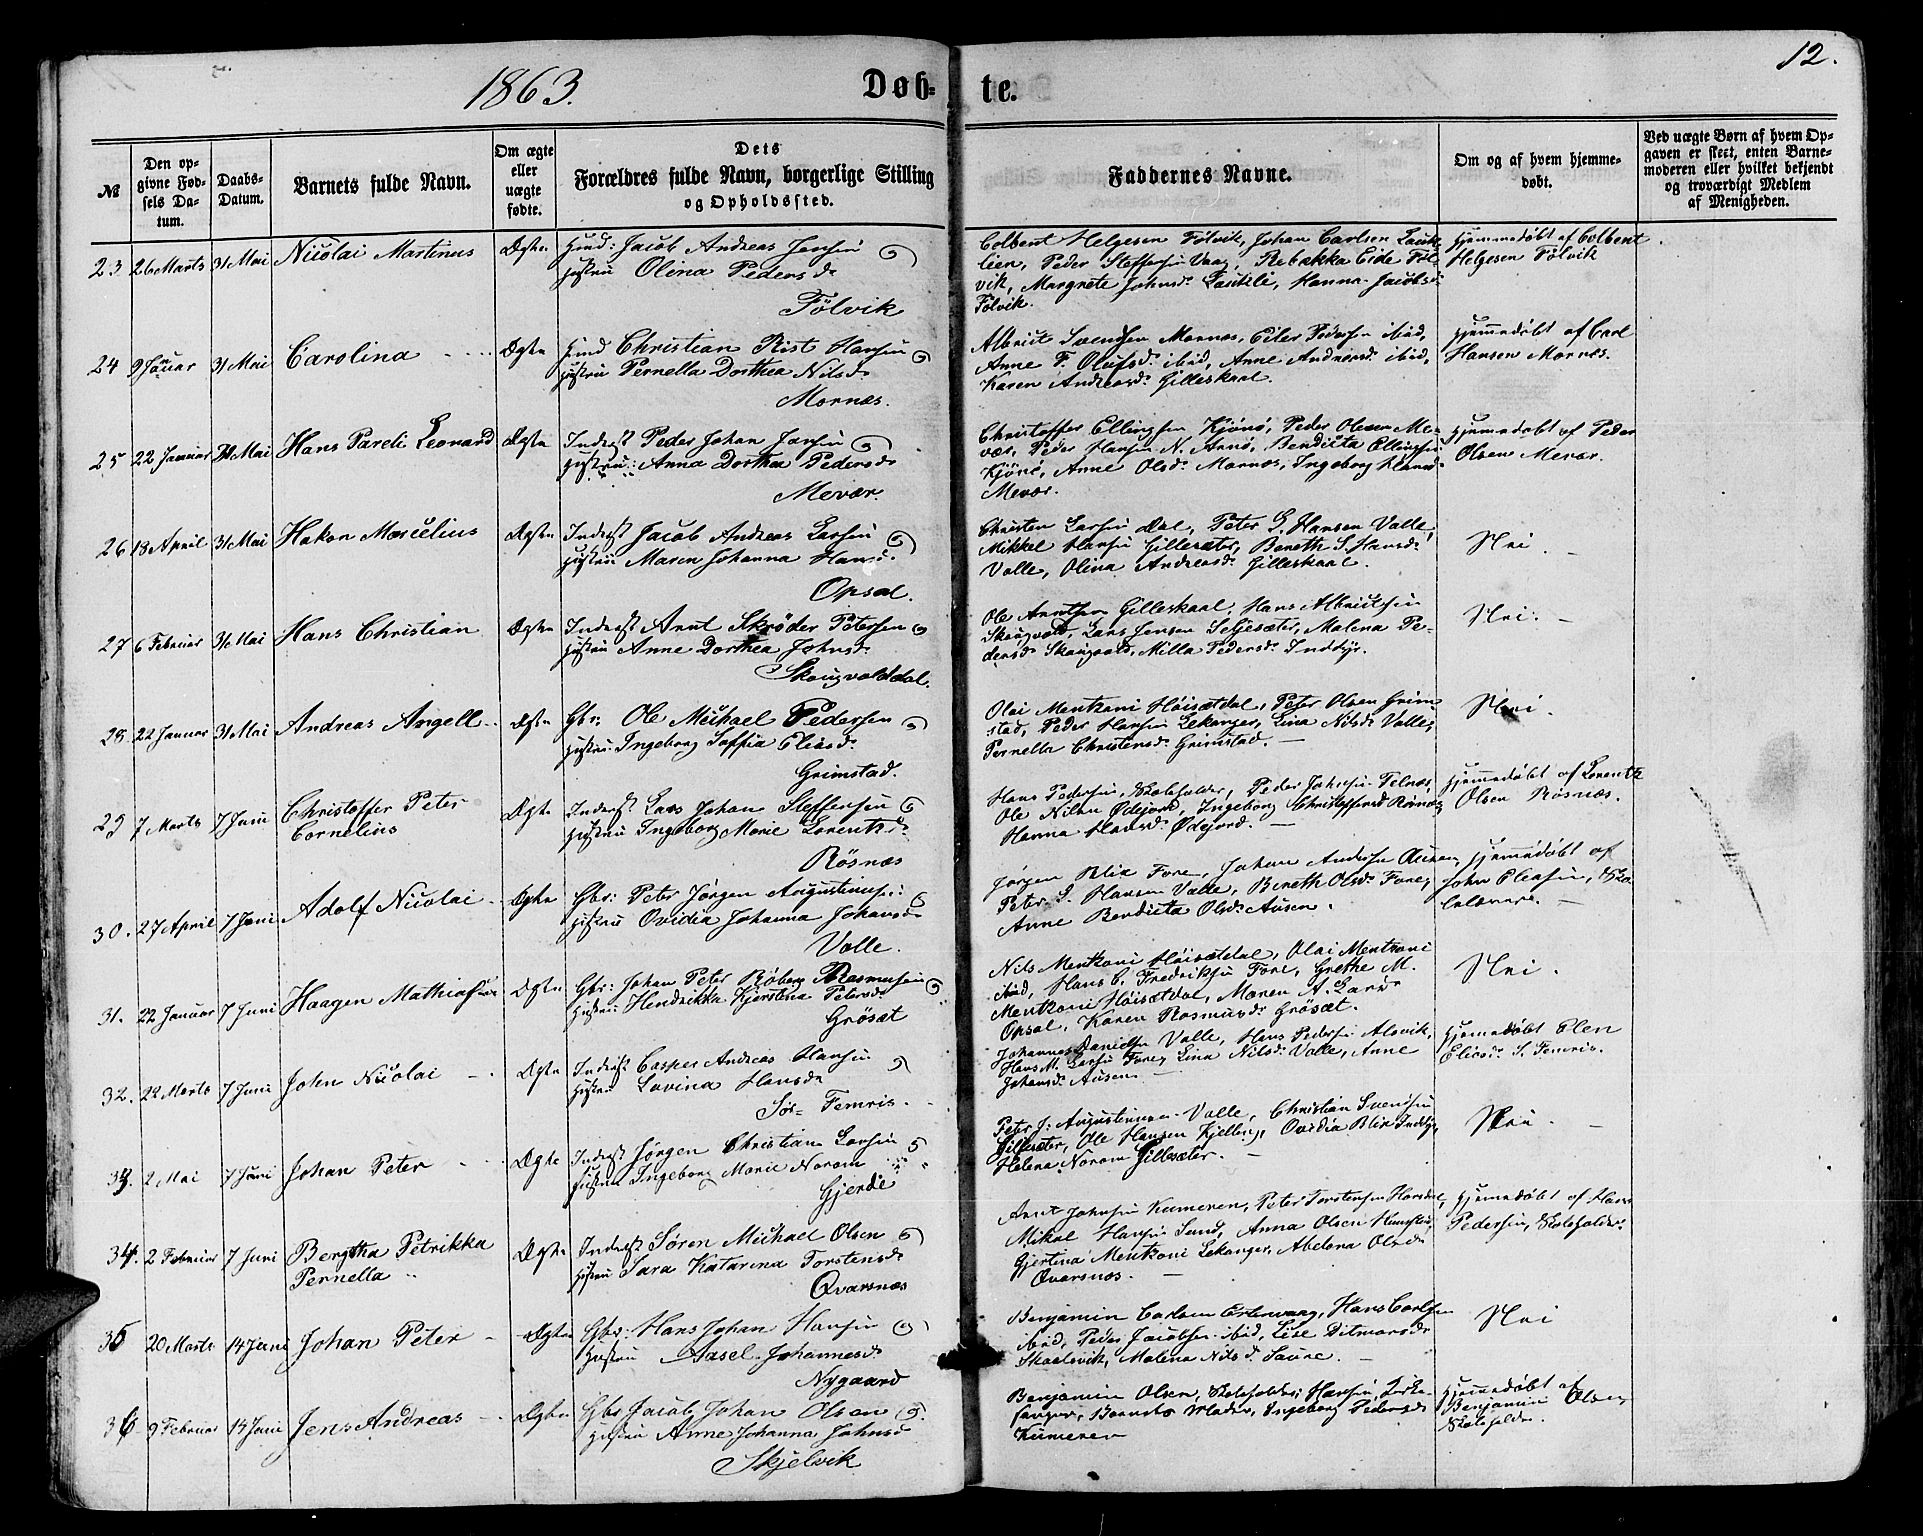 1863.
Døb-
te.
12.
№
Den opgivne Fødsels Datum.
Daabs-Datum.
Barnets fulde Navn.
Om ægte eller uægte fødte.
Dets
Forældres fulde Navn, borgerlige Stilling
og Opholdssted.
Faddernes Navne.
Om og af hvem hjemmedøbt.
Ved uægte Børn af hvem Opgaven er skeet, enten Barnemoderen eller hvilket bekjendt og troværdigt Medlem af Menigheden.
23 26 Marts 31 Mai Nicolai Martinus Ægte
Jacob Andreas Jensen
Hustru Olina Pedersd.
Fölvik
Colbent Helgesen Fölvik, Johan Carlsen
Peder Steffensen Vaag, Rebakka Eide Föl-
vik, Margrete Johnsd. Hanna Jacobsd.
Fölvik.
Hjemmedöbt af Colbent
Helgesen Fölvik
24 9 Januar 31 Mai Carolina Ægte
Christian Rist Hansen
Hustru Pernella Dorthea Nilsd.
Mornæs.
Albrict Svendsen Mornæs, Eiler Pedersen ibid,
Anne F. Olufsd. ibid, Anne Andreasd. ibid,
Karen Andreasd. Gilleskaal.
Hjemmedöbt af Carl
Hansen Mornæs.
25 22 Januar 31 Mai Hans Pareli Leonard Ægte
Inderst Peder Johan Jensen
Hustru: Anna Dorthea Pedersd.
Mevær.
Christoffer Ellingsen Kjönö, Peder Olsen Me-
vær, Peder Hansen N. Arnö, Bendicta Ellingsen
Kjönö, Anne Olsd. Mornæs, Ingeborg Hansd.
Mevær.
Hjemmedöbt af Peder
Olsen Mevær.
26 18 April 31 Mai Hakon Marcelius Ægte
Inderst Jacob Andreas Larsen
Hustru Maren Johanna Hansd.
Opsal.
Christen Larsen Dal, Peter G. Hansen Valle,
Mikkel Hansen Gillesæter, Bereth S. Hansd.
Valle, Olina Andreasd. Gilleskaal.
Nei.
27 6 Februar 31 Mai Hans Christian Ægte
Inderst Arnt Skröder Petersen
Hustru Anne Dorthea Johnsd.
Skougvolddal.
Ole Arntsen Gilleskaal, Hans Albrictsen
Skougvold, Lars Jensen Seljesæter, Malena Pe-
dersd. Skougvold, Milla Pedersd. Inddyr.
Nei.
28. 22 Januar 31 Mai Andreas Angell Ægte
Gbr: Ole Michael Pedersen
Hustru: Ingeborg Soffia Eliasd.
Grimstad.
Olai Mentzoni Höisætdal, Peter Olsen Grim
stad, Peder Hansen Lekanger, Lina Nilsd. Valle,
Pernella Christensd. Grimstad.
Nei.
29 7 Marts 7 Juni Christoffer Peter Ægte
Cornelius
Inderst Lars Johan Steffensen
Hustru Ingeborg Marie Lorentsd.
Rösnæs
Hans Pedersen, Skoleholder, Peder Johnsen Telnæs,
Ole Nilsen Ødejord, Ingeborg Christoffersd. Rösnæs,
Hanna Hansd. Ødejord.
Hjemmedöbt af Lorents
Olsen Rösnæs.
30. 27 April 7 Juni Adolf Nicolai Ægte
Gbr: Peter Jörgen Augustinusen
Hustru Ovidia Johanna Johansd.
Valle.
Jörgen Blix Fore, Johan Andersen Ausen,
Peter S. Hansen Valle, Bereth Olsd. Fore,
Anne Bendicta Olsd. Ausen.
Hjemmedöbt af
John Eliasen, Sko-
lelærer.
31. 22 Januar 7 Juni Haagen Mathias Ægte
Gbr: Johan Peter Röberg Rasmusen
Hustru: Hendrikka Kjerstina Petersd.
Grösæt
Nils Mentzoni Höisætdal, Olai Mentzoni
ibid, Hans C. Fredriksen Fore, Grethe M.
Mentzoni Höisætdal, Maren A. Larsd.
Opsal, Karen Rasmusd. Grösæt.
Nei.
32. 22 Marts 7 Juni John Nicolai Ægte
Inderst Casper Andreas Hansen
Hustru Lovina Hansd.
Sör-Femris.
Johannes Danielsen Valle, Hans Pedersen Alsvik,
Hans M. Larsen Fore, Lina Nilsd. Valle, Anne
Johansd. Ausen.
Hjemmedöbt Elen
Eliasd. S. Femris.
33. 2 Mai 7 Juni Johan Peter Ægte
Inderst Jörgen Christian Larsen
Hustru Ingeborg Marie Norom
Gjerde
Peter J. Augustinusen Valle, Christian Svendsen
Gillesæter, Ole Hansen Kjelling, Ovidia Blix Inddyr,
Helena Norom Gillesæter.
Nei.
34. 2 Februar 7 Juni Bergtha Petrikka Ægte
Pernella
Inderst Sören Michael Olsen
Hustru Sara Katarina Torstensd.
Qvarsnæs
Arnt Johnsen Kumeren, Peter Torstensen Horsdal,
Mikal Hansen Sund, Anna Olsen
Gjertina Mentzoni Lekanger, Abelona Olsd.
Qvarsnæs.
Hjemmedöbt af Hans
Pedersen, Skoleholder.
35 20 Marts 14 Juni Johan Peter Ægte
Gbr: Hans Johan Hansen
Hustru Aasel Johannesd.
Nygaard
Benjamin Carlsen Hans Carlsen
ibid, Peder Jacobsen ibid, Lise Ditmarsd.
Skaalsvik, Malena Nilsd. Saura.
Nei
36 9 Februar 14 Juni Jens Andreas Ægte
Gbr Jacob Johan Olsen
Hustru Anne Johanna Johnsd.
Skjelvik
Benjamin Olsen, Skoleholder, Hansen, Kirke-
sanger, Barnets Moder, Ingeborg Pedersd.
Kumeren
Hjemmedöbt af
Benjamin Olsen,
Skoleholder.